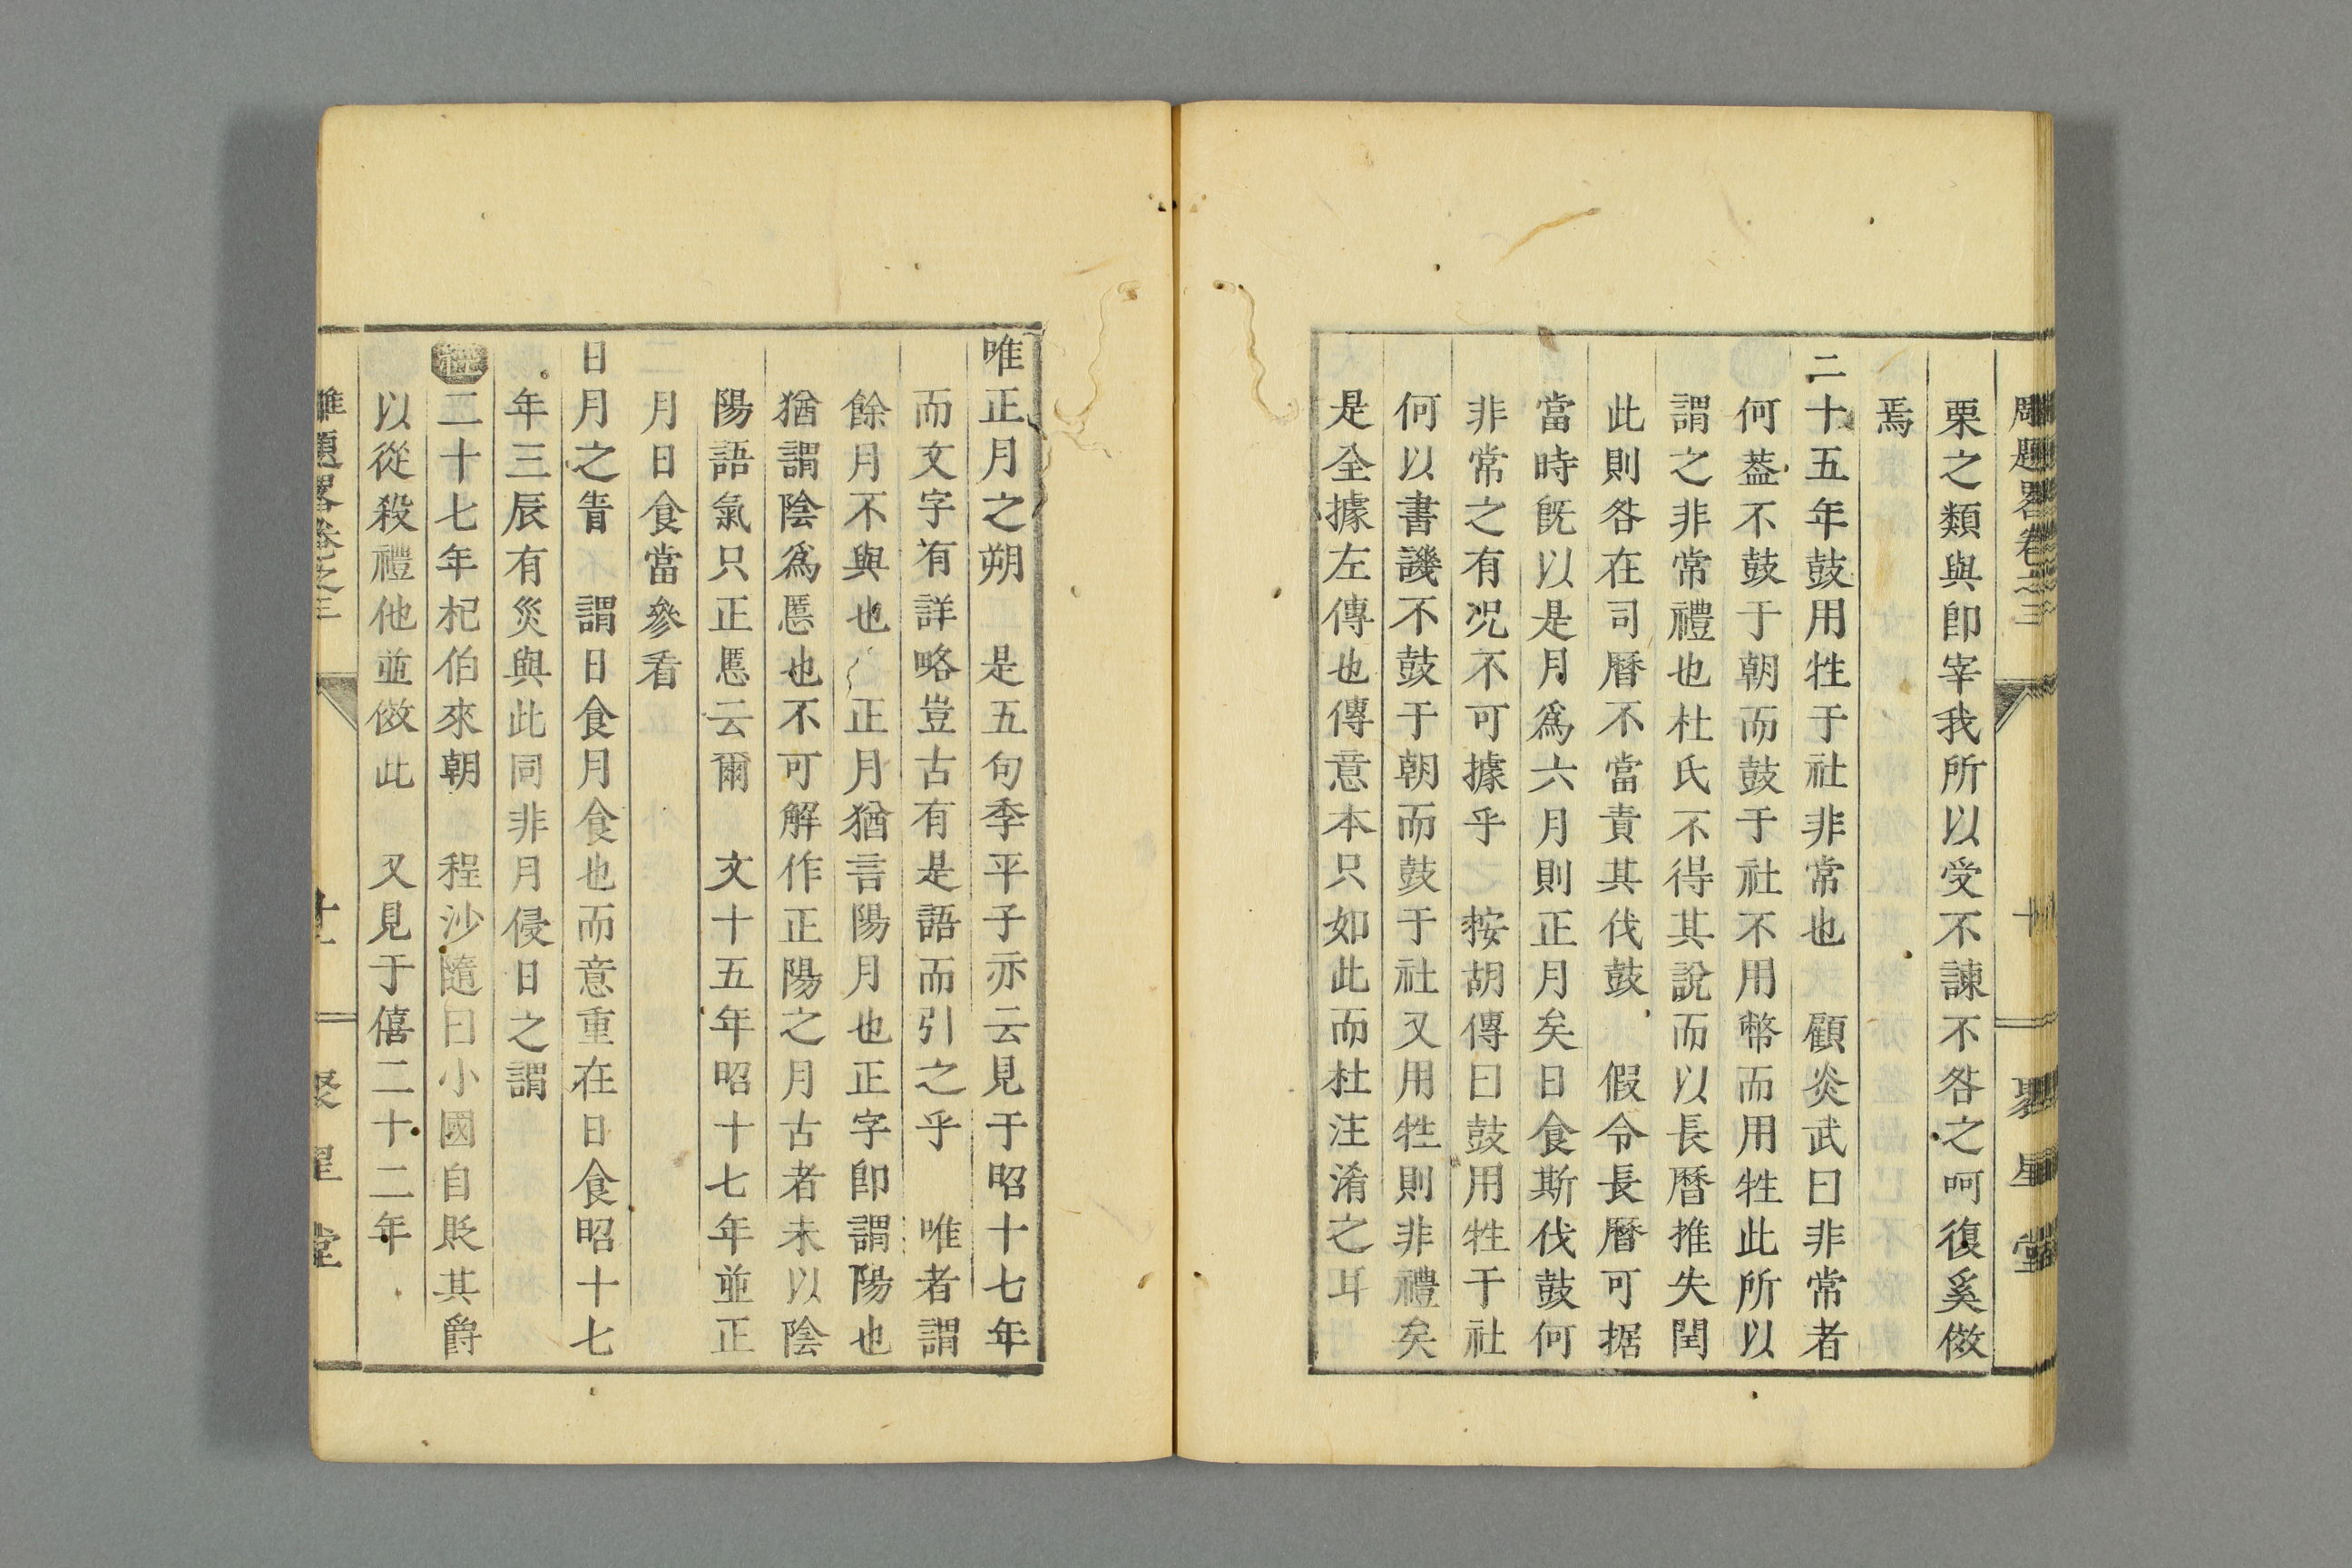 雕題畧卷之三 十 聚星堂
栗之類與卽宰我所以受不諫不咎之呵復奚倣
焉
二十五年鼓用牲于社非常也 顧炎武曰非常者
何葢不鼓于朝而鼓于社不用幣而用牲此所以
謂之非常禮也杜氏不得其說而以長曆推失閏
此則咎在司曆不當責其伐鼓 假令長曆可据
當時旣以是月爲六月則正月矣日食斯伐鼓何
非常之有况不可據乎 按胡傳曰鼓用牲于社
何以書譏不鼓于朝而鼓于社又用牲則非禮矣
是全據左傳也傳意本只如此而杜注淆之耳
唯正月之朔 是五句季平子亦云見于昭十七年
而文字有詳略豈古有是語而引之乎 唯者謂
餘月不與也 正月猶言陽月也正字卽謂陽也
猶謂陰爲慝也不可解作正陽之月古者未以陰
陽語氣只正慝云爾 文十五年昭十七年並正
月日食當參看
日月之眚 謂日食月食也而意重在日食昭十七
年三辰有災與此同非月侵日之謂
二十七年杞伯來朝 程沙隨曰小國自貶其爵
以從殺禮他並倣此 又見于僖二十二年
雕題畧卷之三 十一 聚星堂